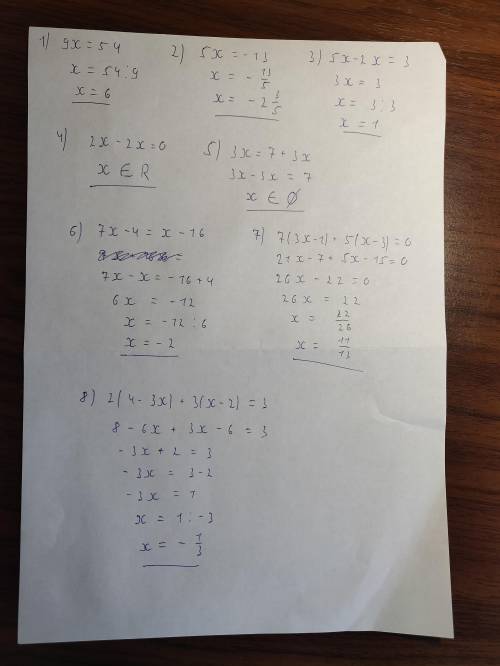 1) 9x = 54
x = 54 : 9
x = 6
2) 5x = -13
x = - 13/5
x = - 2 3/5
3) 5x - 2x = 3
3x = 3
x = 3 : 3
x = 1
4) 2x - 2x = 0
x ∈ R
5) 3x = 7 + 3x
3x - 3x = 7
x ∈ Ø
6) 7x - 4 = x - 16
7x - x = -16 + 4
6x = -12
x = -12 : 6
x = -2
7) 7(3x - 1) + 5(x - 3) = 0
21x - 7 + 5x - 15 = 0
26x - 22 = 0
26x = 22
x = 22/26
x = 11/13
8) 2(4 - 3x) + 3(x - 2) = 3
8 - 6x + 3x - 6 = 3
-3x + 2 = 3
-3x = 3 - 2
-3x = 1
x = 1 : -3
x = - 1/3